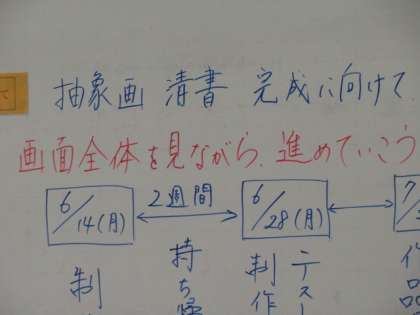 抽象画 清書 完成に向けて
画面全体を見ながら、進めていこう
6/14(月) 2週間 6/28(月) 7/
制
持ち
制作
テスト
作品